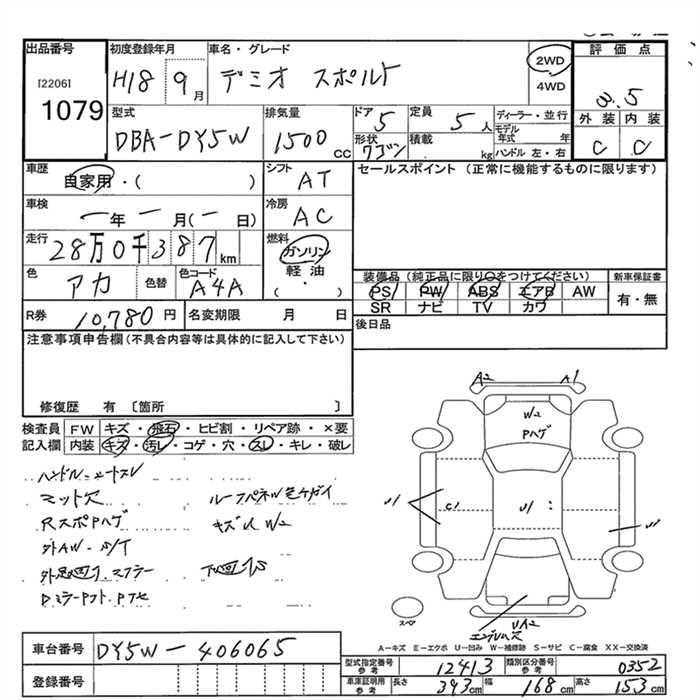 出品番号
[2206]
1079
初度登録年月
H18 9月
車名・グレード
デミオ スポルト
2WD
4WD
評価点
3.5
外装 内装
C C
型式
DBA-DY5W
排気量
1500 CC
ドア
5
定員
5人
形状
ワゴン
積載
kg
ディーラー・並行
モデル年式 年
ハンドル 左・右
車歴
自家用・( )
シフト
AT
セールスポイント (正常に機能するものに限ります)
車検
一年一月(一日)
冷房
AC
走行
28万0千387km
燃料
ガソリン
軽油
( ・ )
色
アカ
色替
色コード
A4A
装備品(純正品に限り○をつけてください)
新車保証書
PS PW ABS エアB AW
SR ナビ TV カワ
有・無
R券
10,780円
名変期限 月 日
後日品
注意事項申告欄(不具合内容等は具体的に記入して下さい)
修復歴 有 〔箇所 〕
検査員記入欄
FW キズ・飛石・ヒビ割・リペア跡・×要
内装 キズ・汚レ・コゲ・穴・スレ・キレ・破レ
マット穴
RスポPハゲ
ルーフパネル色チガイ
キズ凹 W2
A2 A1
W2
Pハゲ
U1
C1
U1
U1
UA2
スペア
A-キズ E-エクボ U-凹み W-補修跡 S-サビ C-腐食 XX-交換済
車台番号
DY5W-406065
登録番号
型式指定番号 参考
12413
類別区分番号 参考
0352
車庫証明用 参考
長さ 393cm 幅 168cm 高さ 153cm